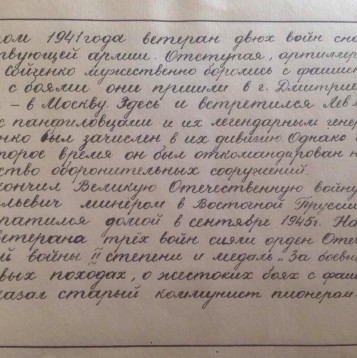 ром 1941 года ветеран двух войн сно
твующей армии. Отступая, артиллер
Сойченко мужественно боролись с фашис
с боями они пришли в г. Дмитрие
– в Москву. Здесь и встретился Лев М
с панфиловцами и их легендарным гене
нко был зачислен в их дивизию. Однако
торое время он был откомандирован н
ство оборонительных сооружений.
кончил Великую Отечественную войну
льевич минёром в Восточной Прусси
ратился домой в сентябре 1945г. На
ветерана трёх войн сияли орден Отеч
ой войны II степени и медаль „За боевы
вых походах, о жестоких боях с фаш
казал старый коммунист пионерам